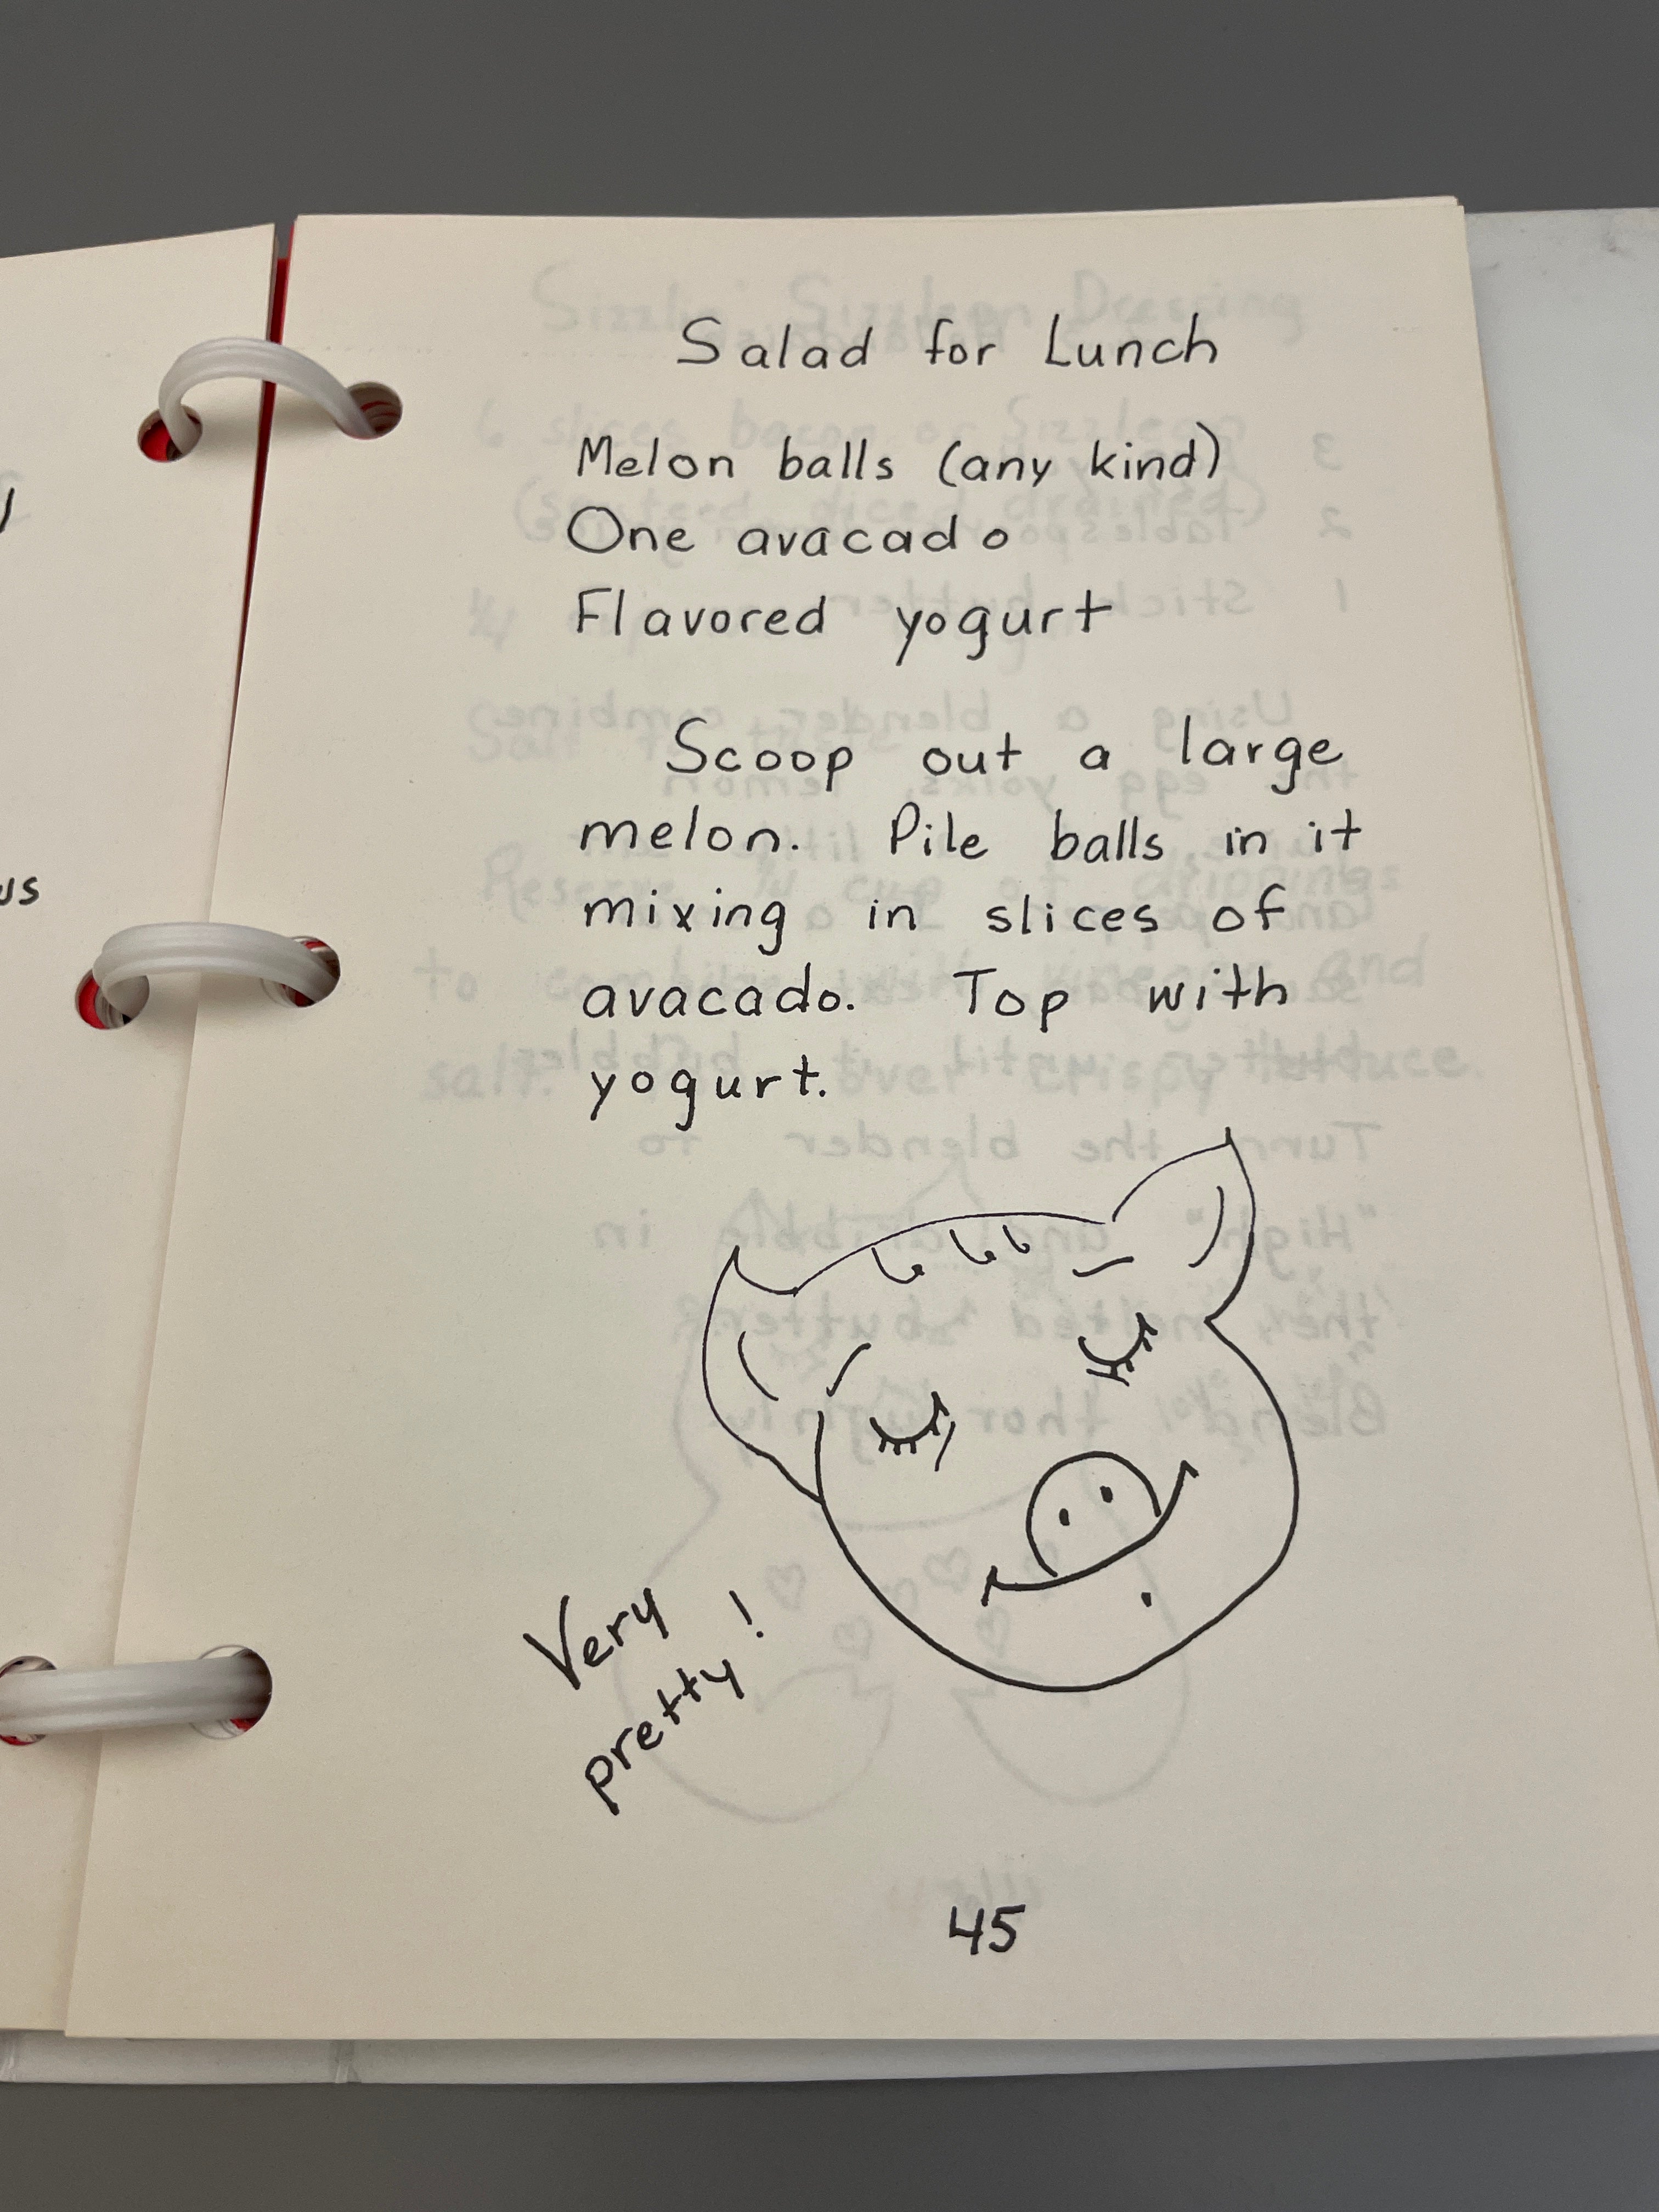 Salad for Lunch
Melon balls (any kind)
One avacado
Flavored yogurt
Scoop out a large
melon. Pile balls in it
mixing in slices of
avacado. Top with
yogurt.
Very
pretty!
45
us